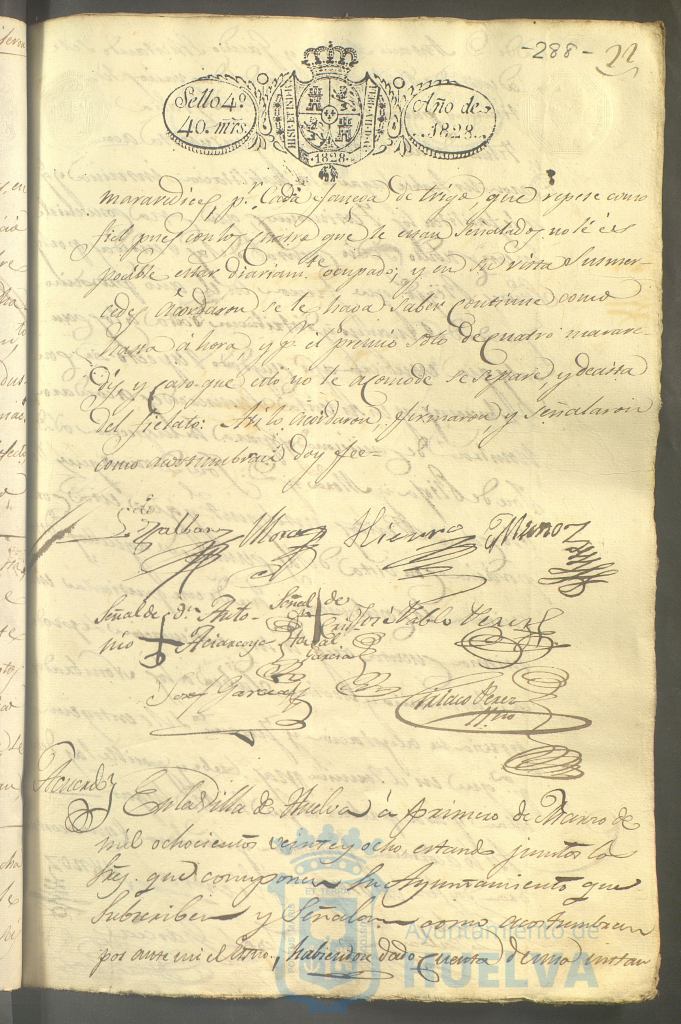 -288- 22
Sello 4º
40. mrs
HISP. ET IND. R
1828
Año de
1828.
maravedices, pr. Cada fanega de trigo que repese como
fiel pues con los quatro que le estan señalados no le és
posible estar diariamte. ocupado; y en su vista Susmer-
cedes Acordaron se le haga saber continue como
hasta áhora, y pr. el premio solo de quatro marave-
dis y caso que esto no le acomode se separe y decista
del fielato: Asi lo acordaron, firmaron y señalaron
como acostumbran doy fee=
Mora Hierro Muñoz
Señal de dn. Anto- Señal de Cris- Jose Pablo Perez
nio tobal
Garcia
Josef Garcia Perez
Acuerdo
En la Villa de Huelva á primero de Marzo de
mil ochocientos veinte y ocho estando juntos los
Sres. que componen su Ayuntamiento que
Subscriben y Señalan como acostumbran
por ante mi el Esno., habiendose dado cuenta de una instan
Ayuntamiento de
HUELVA